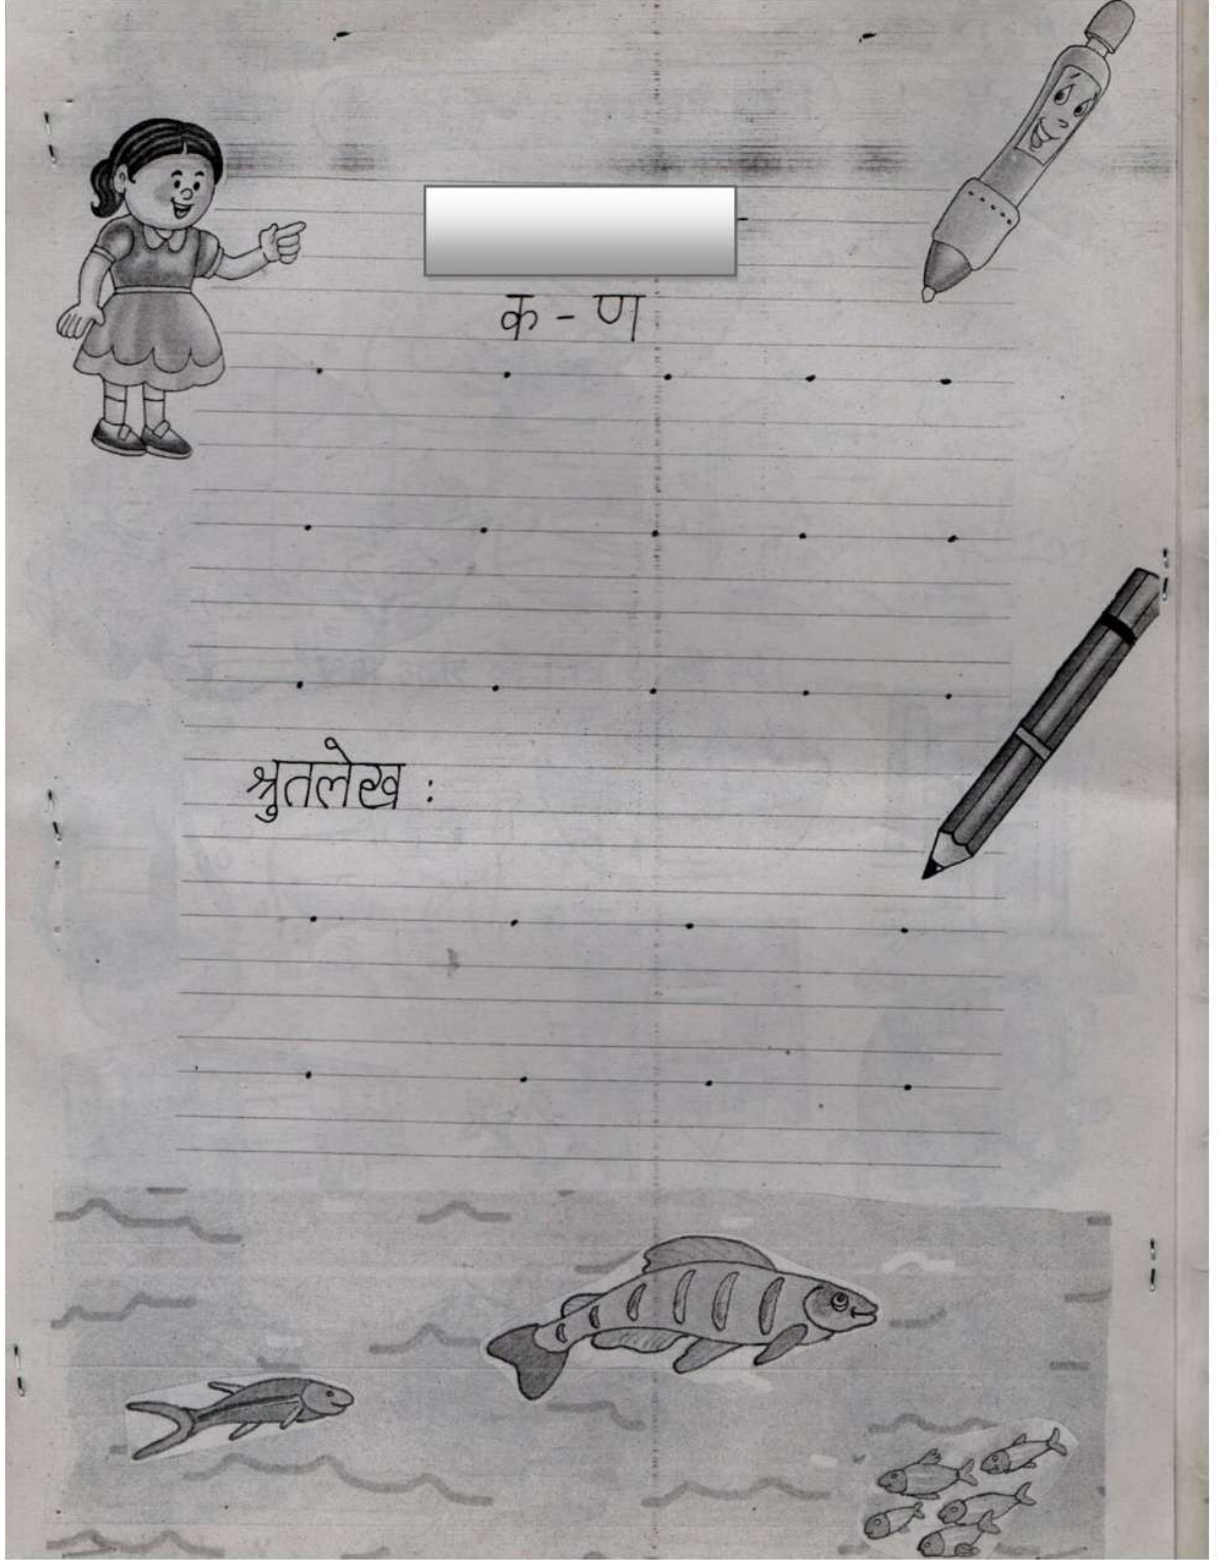 क - ण
श्रुतलेख :